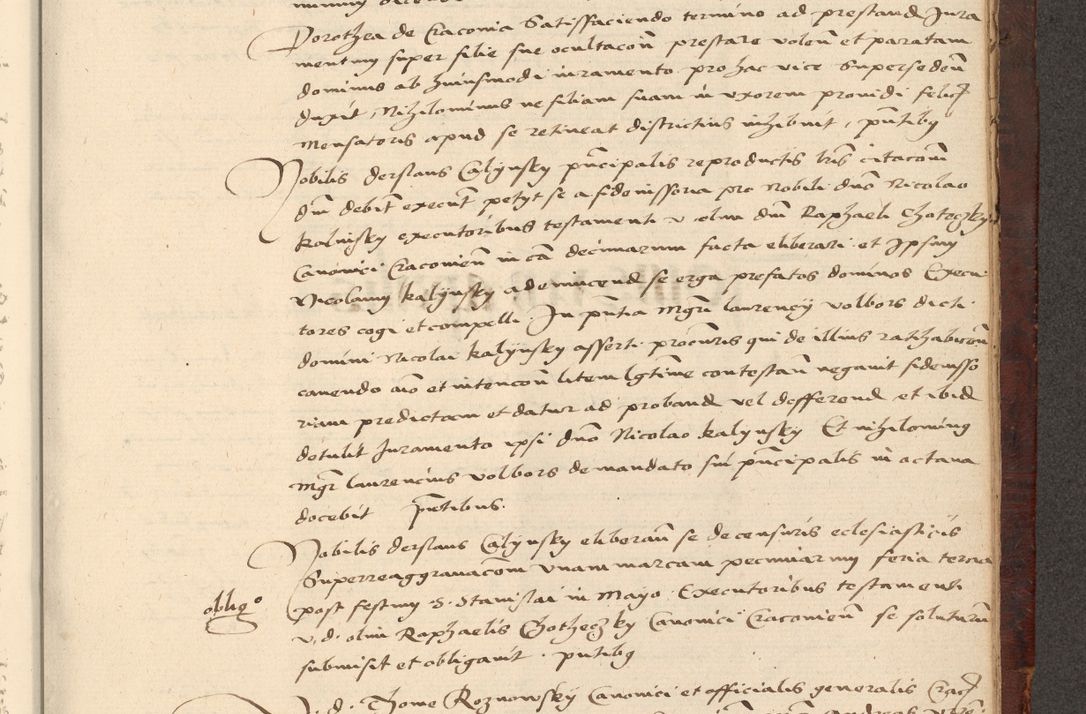 Dorothea de Craconia Satisfaciendo termino ad prestand Jura
mentum super filie sue ocultacoñ prestare voleñ et paratam
dominus ab huiusmodi iuramento pro hac vice Supersedeñ
duxit, Nihilominus ne filiam suam in vxorem prouidi felic
Mensatoris apud se retineat districtius inhibuit, pñtibus
Nobilis derslaus Calÿnsky principalis reproductis lris citacom
dm debit execut petÿt se a fideiussoria pro Nobili dño Nicolao
kalinsky executoribus testamenti v. olim dm Raphaeli Choteczky
Canonici Cracovien in cā decimarum facta eliberari et Ipsum
Nicolaum kalÿnsky ad eminend se erga prefatos dominos Execu
tores cogi et compelli In pñtia Mgri laurencÿ volbors dicti
domini Nicolai kalÿnsky asserti procuris qui de illius ratihabicoñ
cauendo aīo et intencoñ litem lgtime contestañ negauit fideiusso
riam predictam et datur ad proband vel defferend et ibid
dotulit Juramento ipsi dño Nicolao kalynsky Et nihilominus
Mgr laurencius volbors de mandato sui principalis in actana
docebit pñtibus.
Nobilis derslaus Calÿnsky eliberañ se de censuris eclesiasticis
Superreaggrauacom vnam marcam pecuniarum feria tercia
obligo
post festum S. Stanislai in Mayo Executoribus testamenti
v. d. olim Raphaelis Chotheczky Canonici Cracovien se soluturū
submisit et obligauit. pñtibus
v. d. Thome Roznowskÿ Canonici et officialis generalis Crac